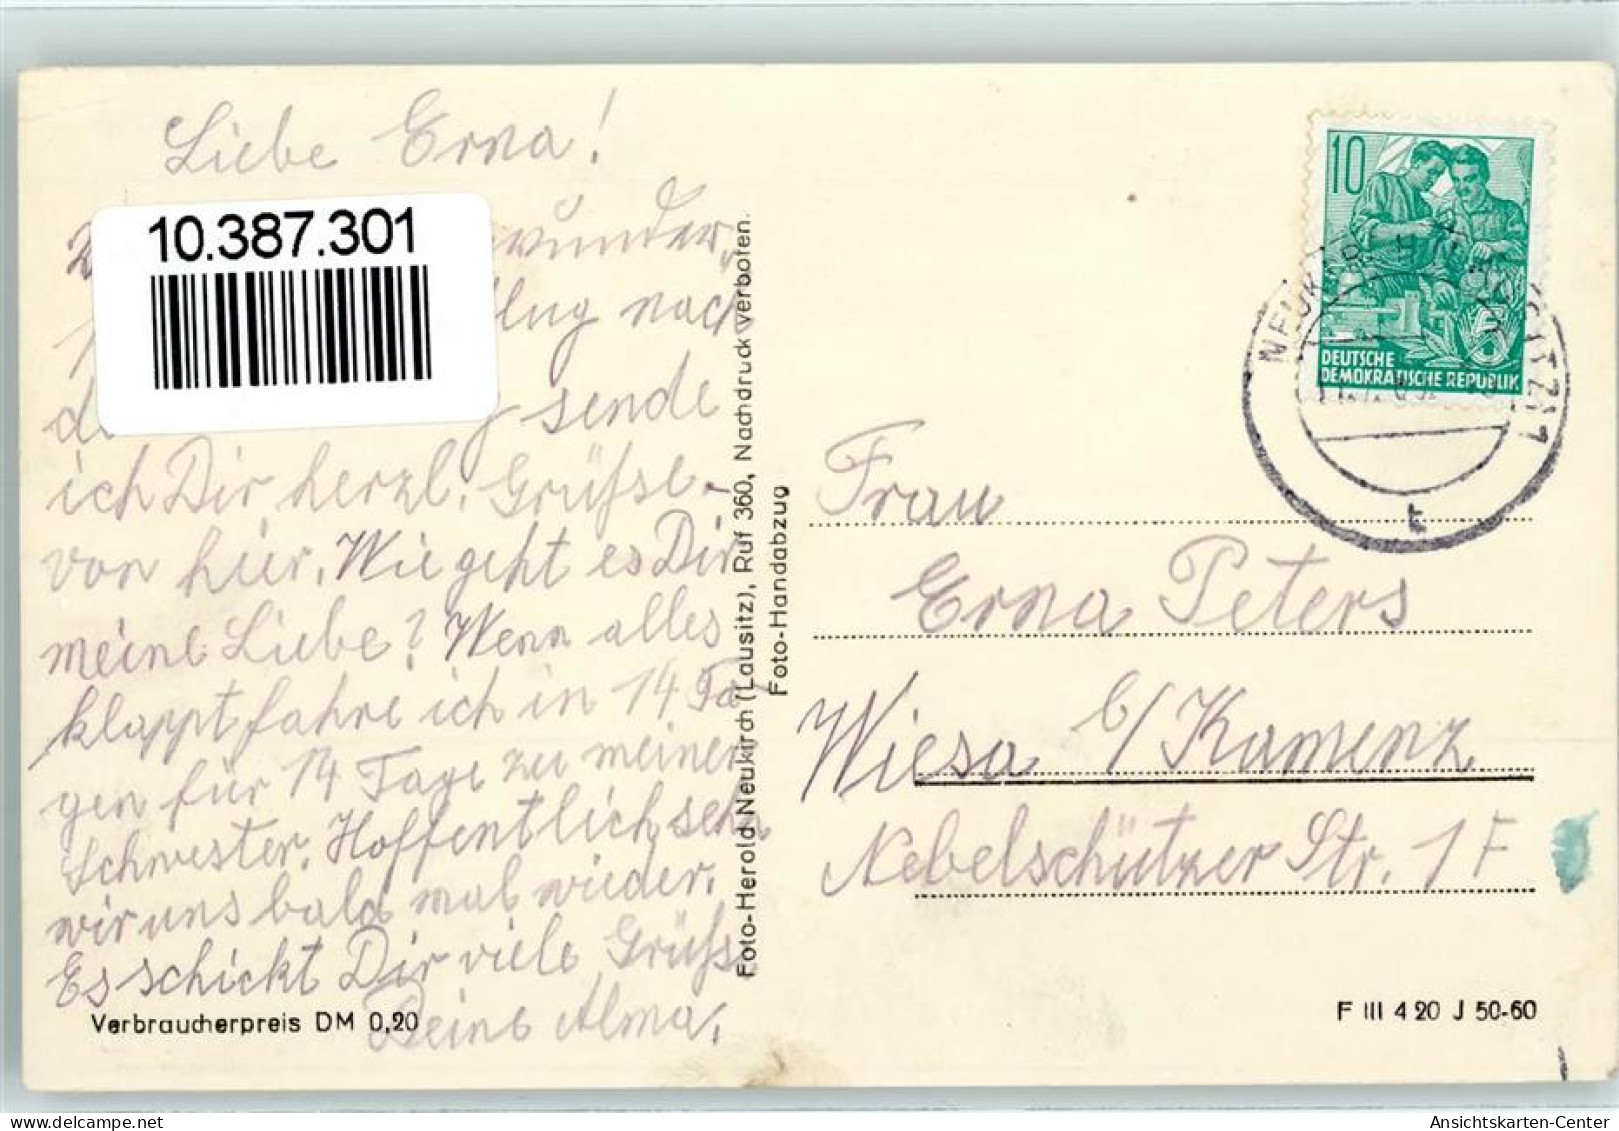 Liebe Erna!
10.387.301
wunder,
flug nach
sende
ich Dir herzl. Grüsse
von hier. Wie geht es Dir
meine Liebe? Wenn alles
klappt fahre ich in 14 Ta-
gen für 14 Tage zu meiner
Schwester. Hoffentlich sehn
wir uns bald mal wieder.
Es schickt Dir viele Grüsse
Deine Alma.
Verbraucherpreis DM 0,20
Foto-Herold Neukirch (Lausitz), Ruf 360, Nachdruck verboten.
Foto-Handabzug
10
DEUTSCHE
DEMOKRATISCHE REPUBLIK
Frau
Erna Peters
Wiesa b/Kamenz
Nebelschützer Str. 1 F
F III 4 20 J 50-60
Ansichtskarten-Center